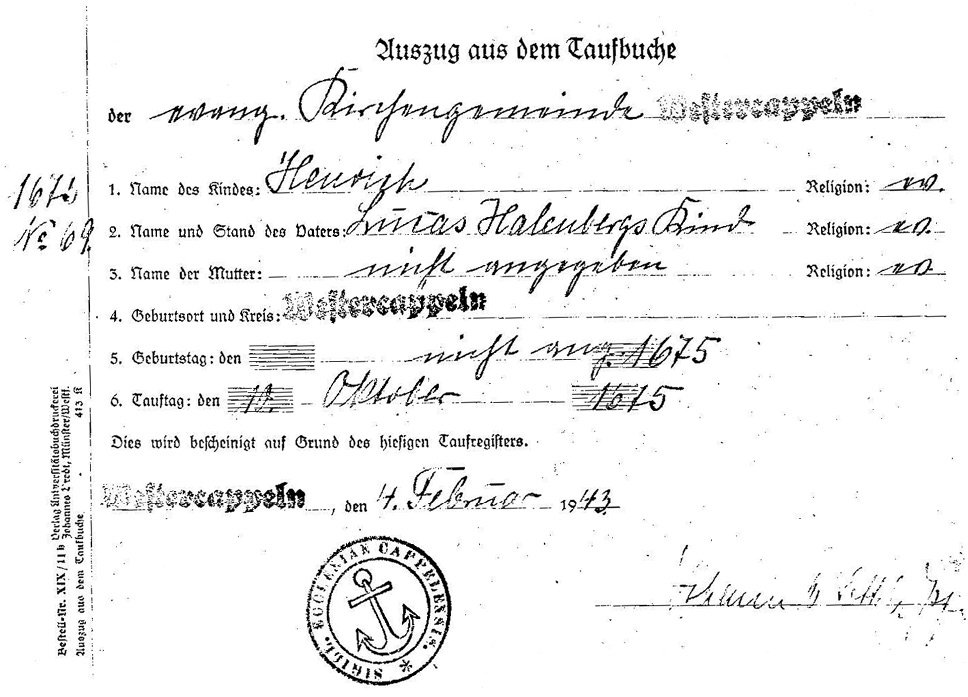 Auszug aus dem Taufbuche
der evang. Kirchengemeinde Westercappeln
1675
No 69.
1. Name des Kindes: Henrich Religion: ev.
2. Name und Stand des Vaters: Lucas Halenbergs Kind Religion: ev.
3. Name der Mutter: nicht angegeben Religion: ev.
4. Geburtsort und Kreis: Westercappeln
5. Geburtstag: den nicht ang. 1675
6. Tauftag: den Oktober 1675
Dies wird bescheinigt auf Grund des hiesigen Taufregisters.
Westercappeln, den 4. Februar 1943.
SIGILL. ECCLESIAE CAPPELENSIS. *
Bestell-Nr. XIX/11 b Verlag Universitätsbuchdruckerei
Auszug aus dem Taufbuche Johannes Bredt, Münster/Westf.
413 K